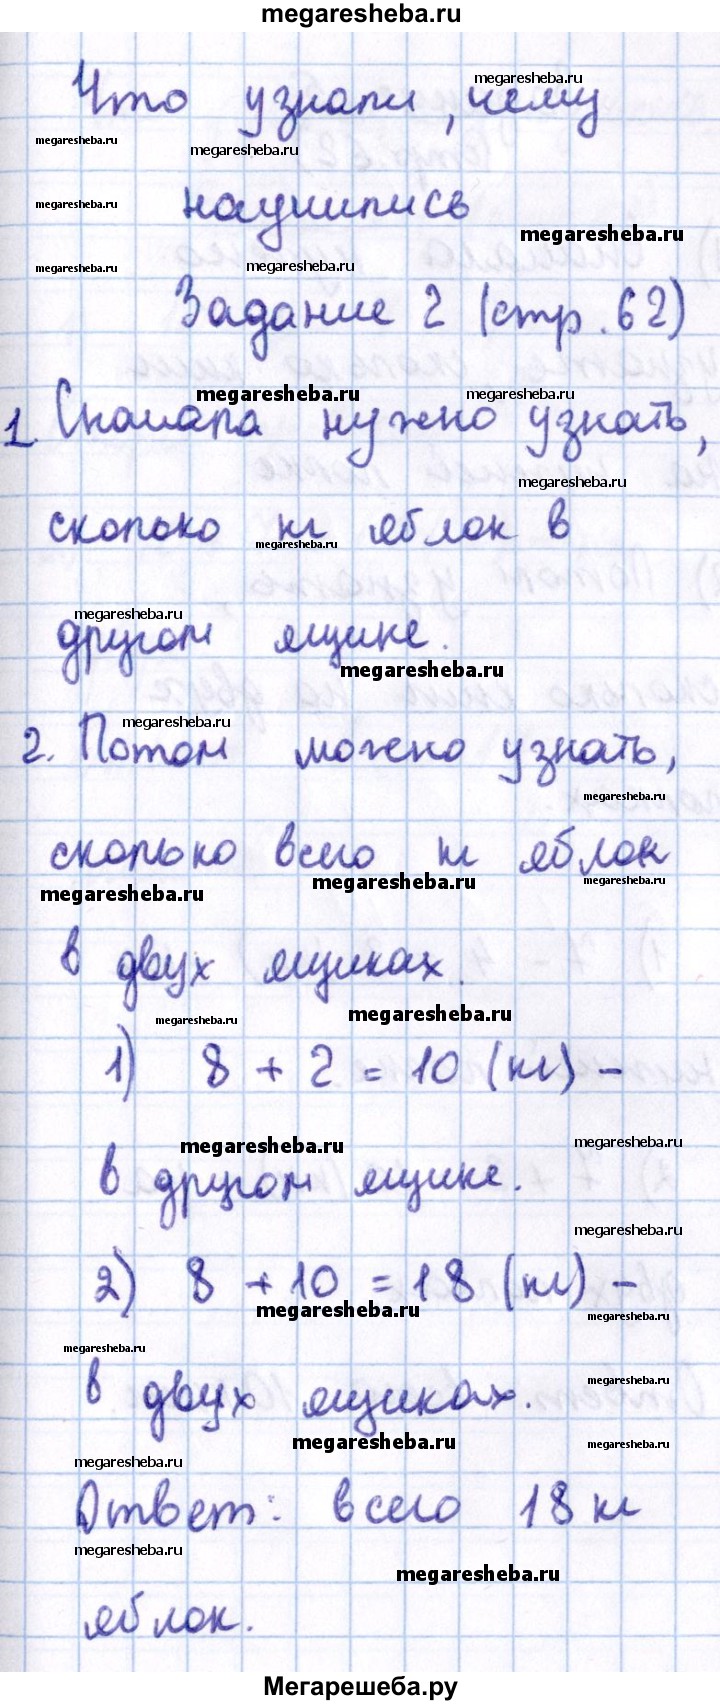 megaresheba.ru
Что узнали, чему
научились
Задание 2 (стр. 62)
1. Сначала нужно узнать,
сколько кг яблок в
другом ящике.
2. Потом можно узнать,
сколько всего кг яблок
в двух ящиках.
1) 8 + 2 = 10 (кг) -
в другом ящике.
2) 8 + 10 = 18 (кг) -
в двух ящиках.
Ответ: всего 18 кг
яблок.
Мегарешеба.ру